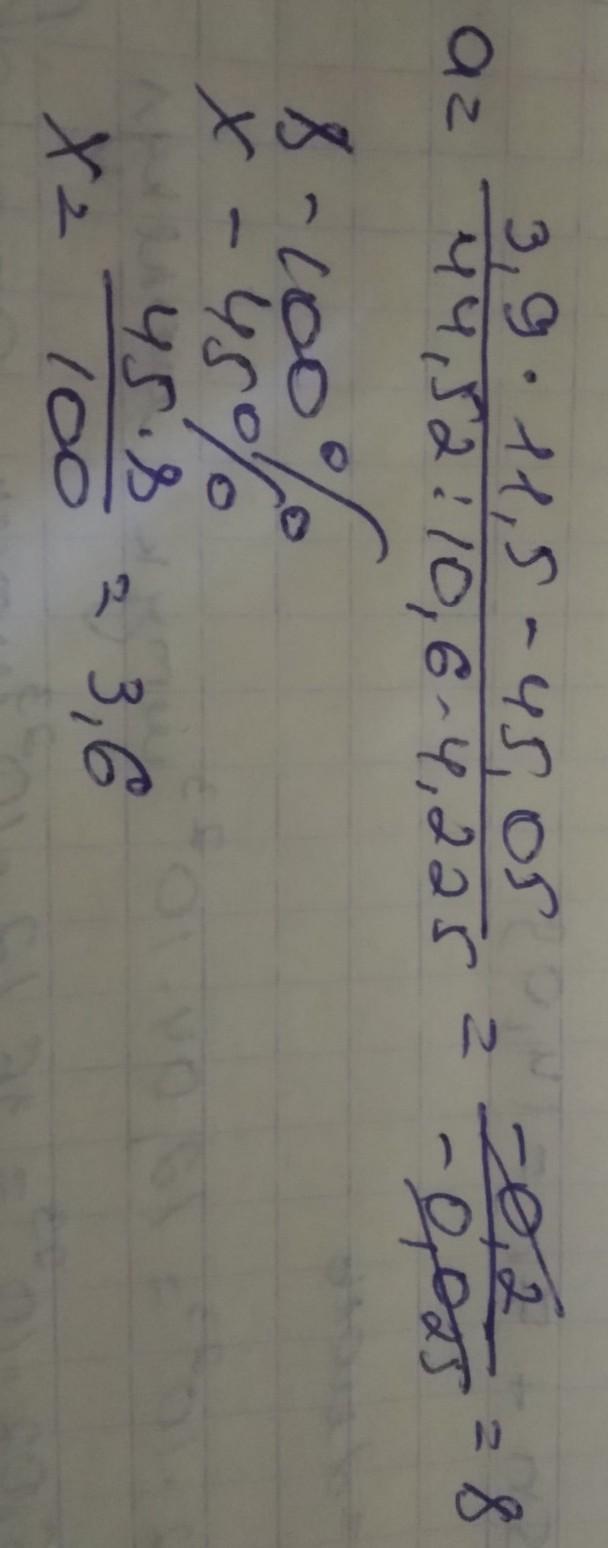 a = 3,9 · 11,5 - 45,05 / 44,52 : 10,6 - 4,225 = -0,2 / -0,025 = 8
8 - 100%
x - 45%
x = 45·8 / 100 = 3,6